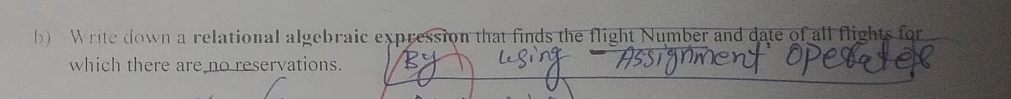 b) Write down a relational algebraic expression that finds the flight Number and date of all flights for
which there are no reservations. By using - Assignment Operater